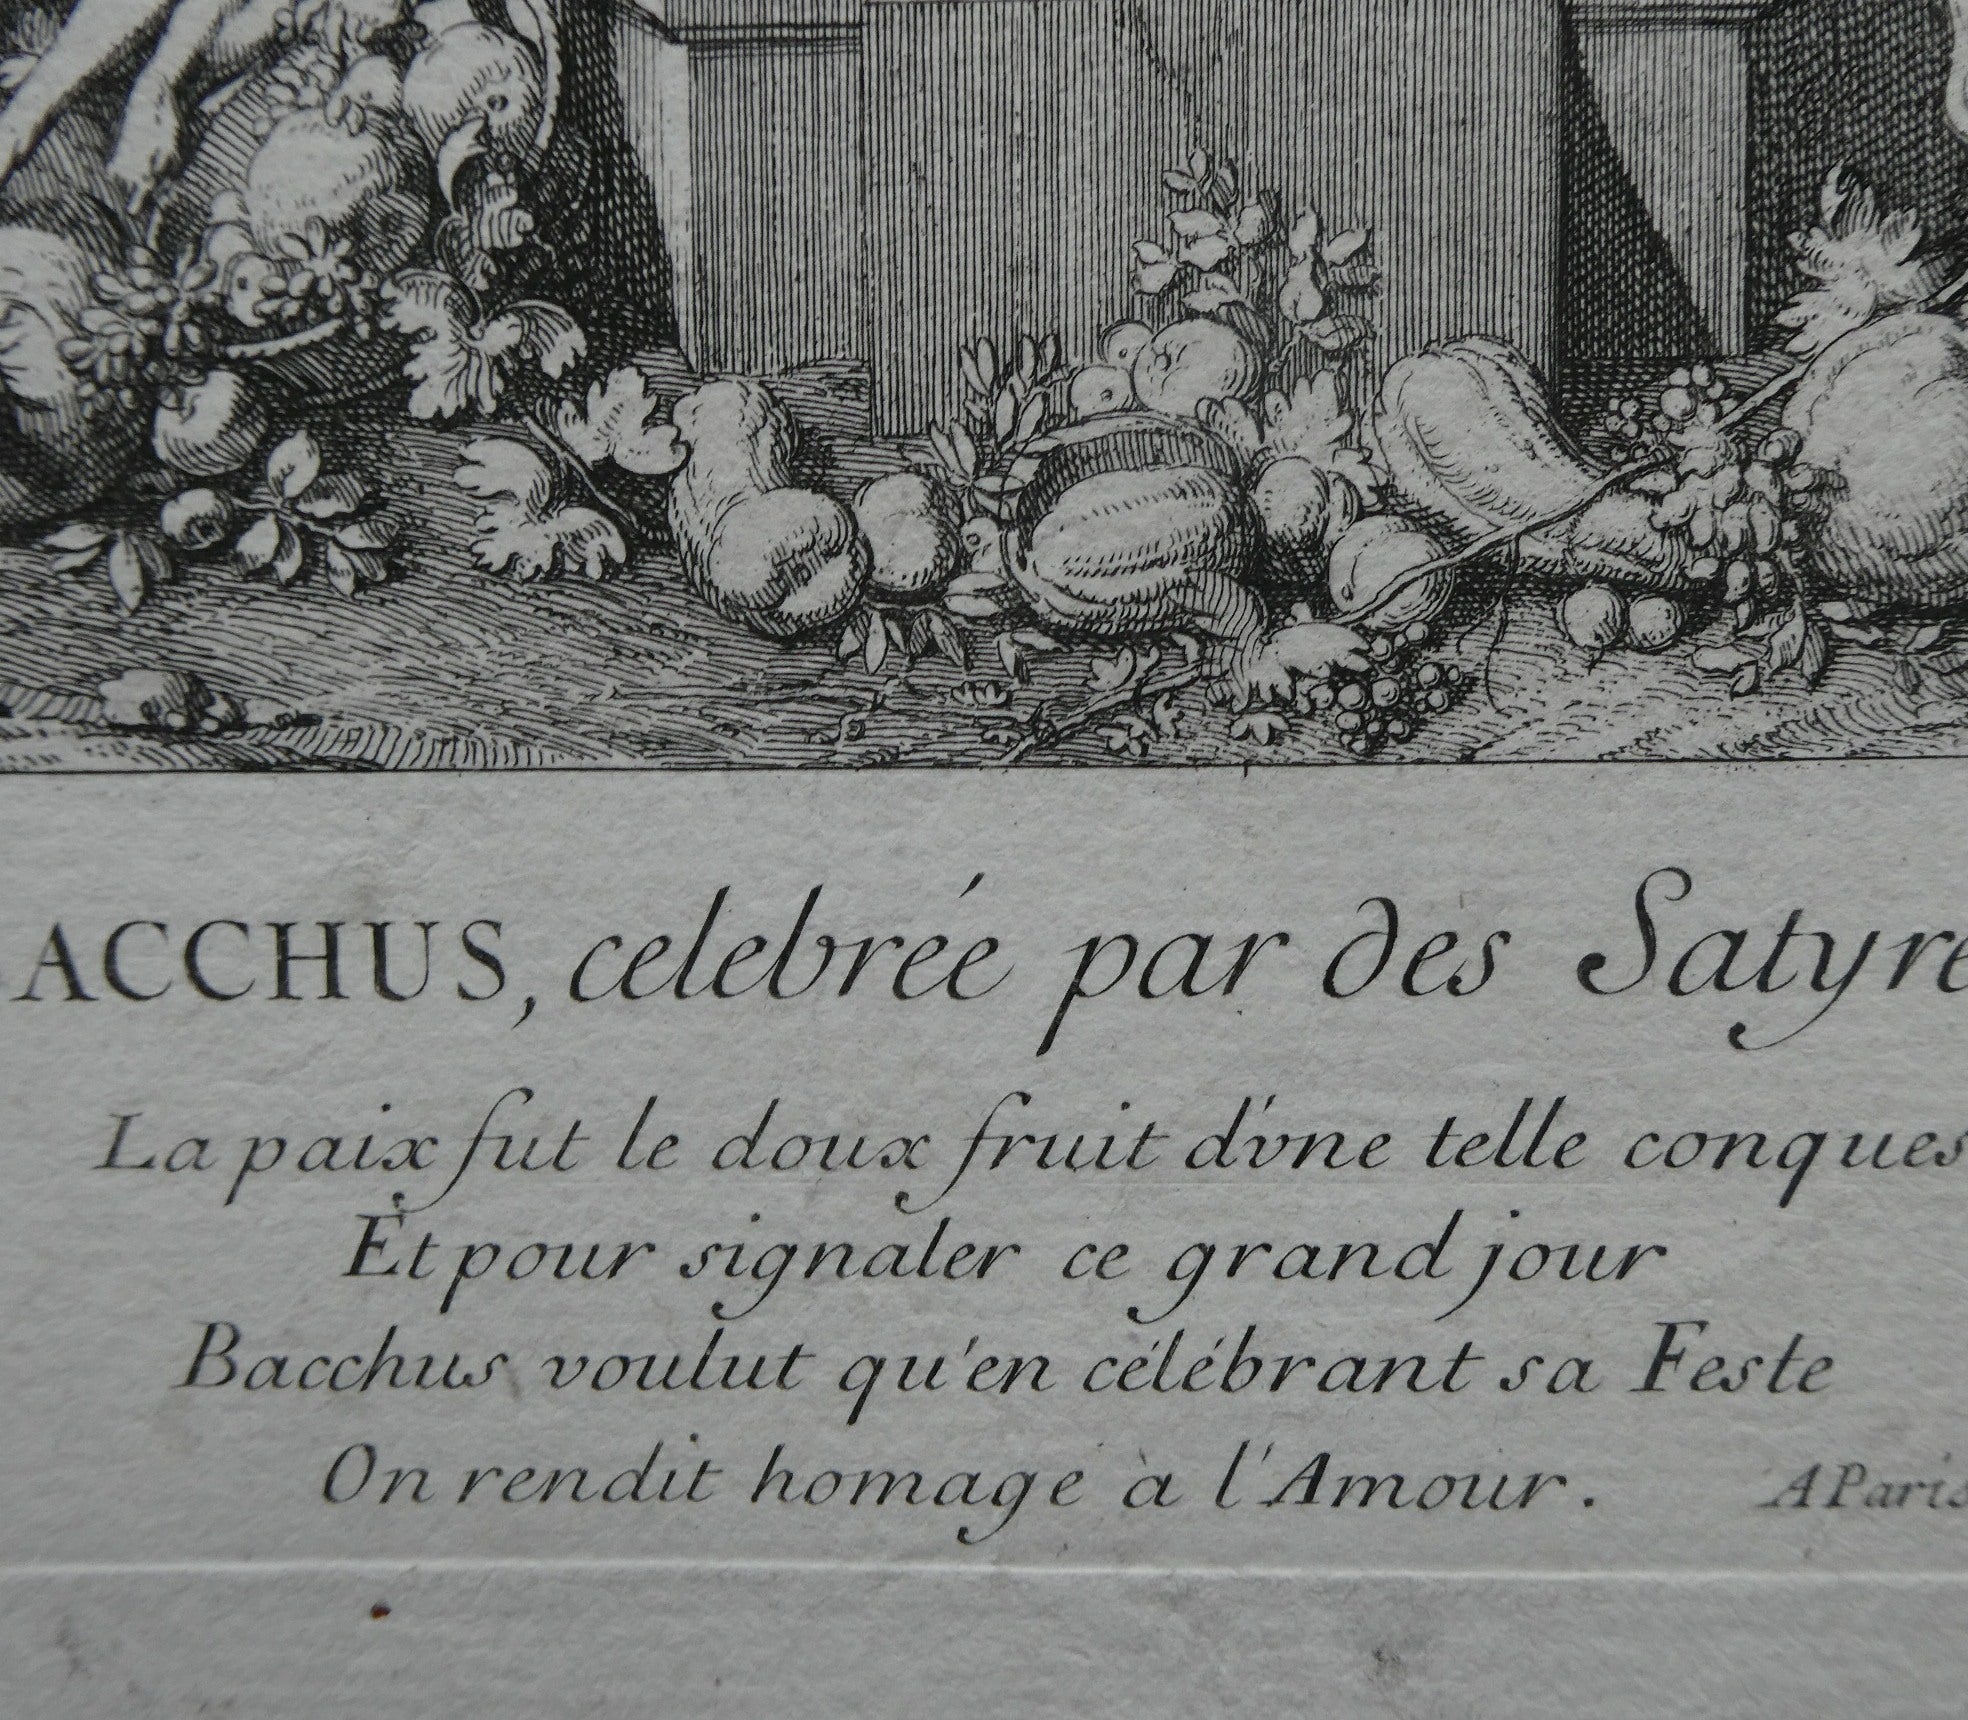 ACCHUS, celebrée par des Satyre
La paix fut le doux fruit d'vne telle conques
Et pour signaler ce grand jour
Bacchus voulut qu'en célébrant sa Feste
On rendit homage à l'Amour. A Paris